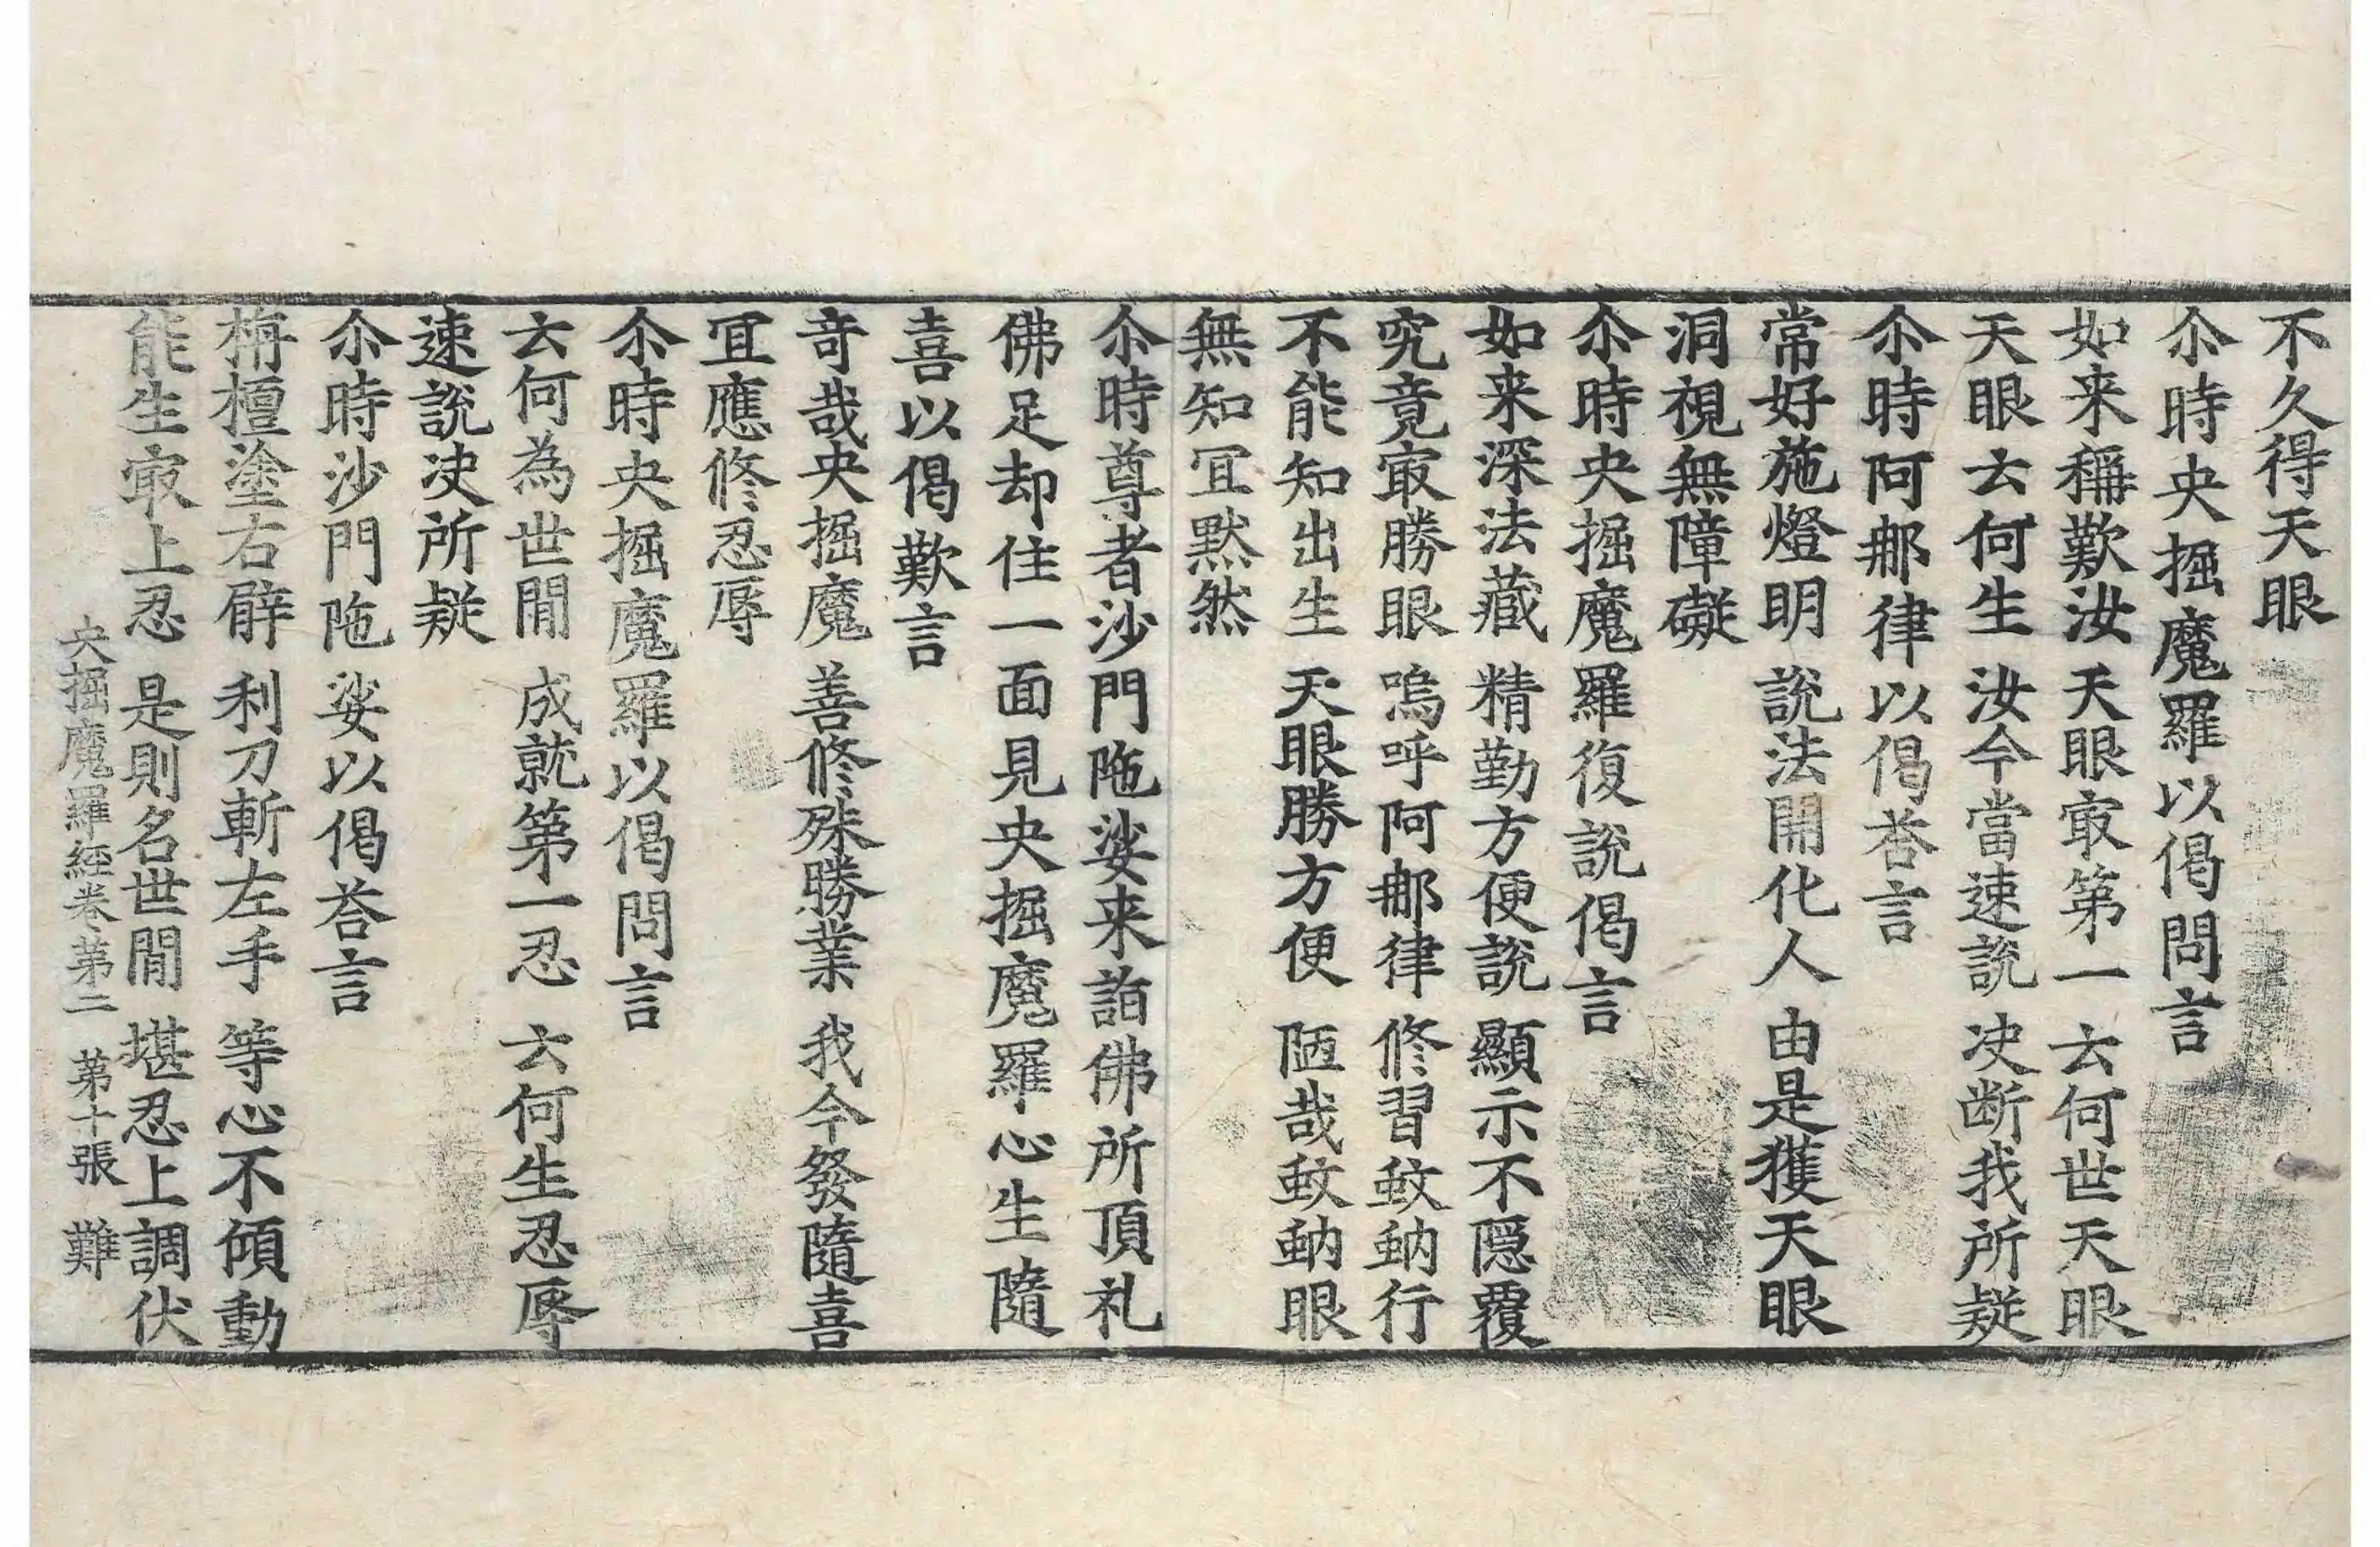 不久得天眼
尒時央掘魔羅以偈問言
如来稱歎汝 天眼㝡第一 云何世天眼
天眼云何生 汝今當速說 决断我所疑
尒時阿那律以偈荅言
常好施燈明 說法開化人 由是獲天眼
洞視無障礙
尒時央掘魔羅復說偈言
如来深法藏 精勤方便說 顯示不隠覆
究竟㝡勝眼 嗚呼阿那律 修習蚊蚋行
不能知出生 天眼勝方便 陋哉蚊蚋眼
無知冝黙然
尒時尊者沙門陁娑来詣佛所頂礼
佛足却住一面見央掘魔羅心生隨
喜以偈歎言
竒哉央掘魔 善修殊勝業 我今發隨喜
冝應修忍辱
尒時央掘魔羅以偈問言
云何為世閒 成就第一忍 云何生忍辱
速說决所疑
尒時沙門陁娑以偈荅言
栴檀塗右臂 利刀斬左手 等心不傾動
能生㝡上忍 是則名世閒 堪忍上調伏
央掘魔羅経卷第二 第十張 難